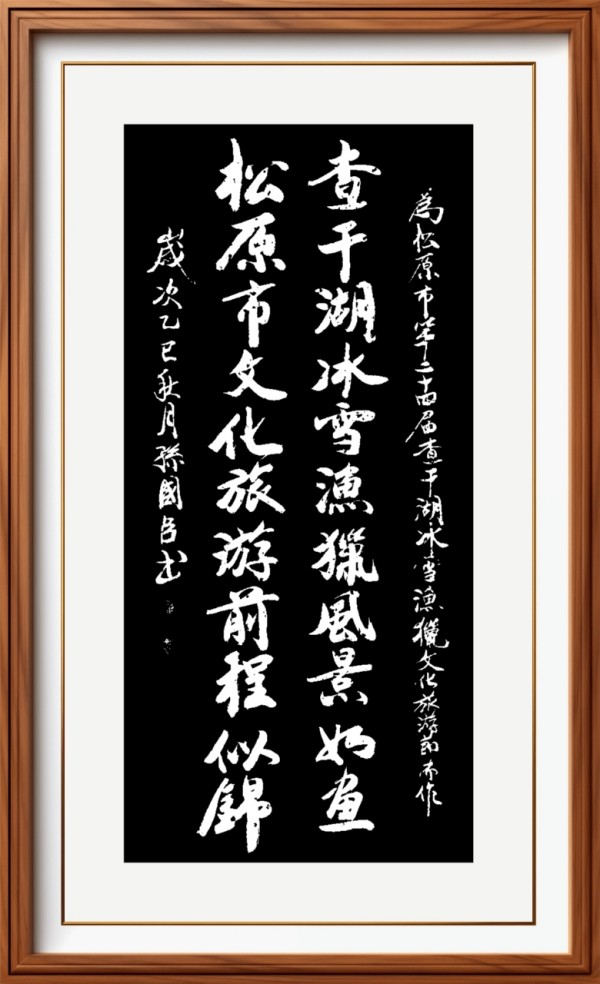 為松原市第二十四届查干湖冰雪漁獵文化旅游節而作
查干湖冰雪漁獵風景如画
松原市文化旅游前程似錦
歲次乙巳秋月孫國名书